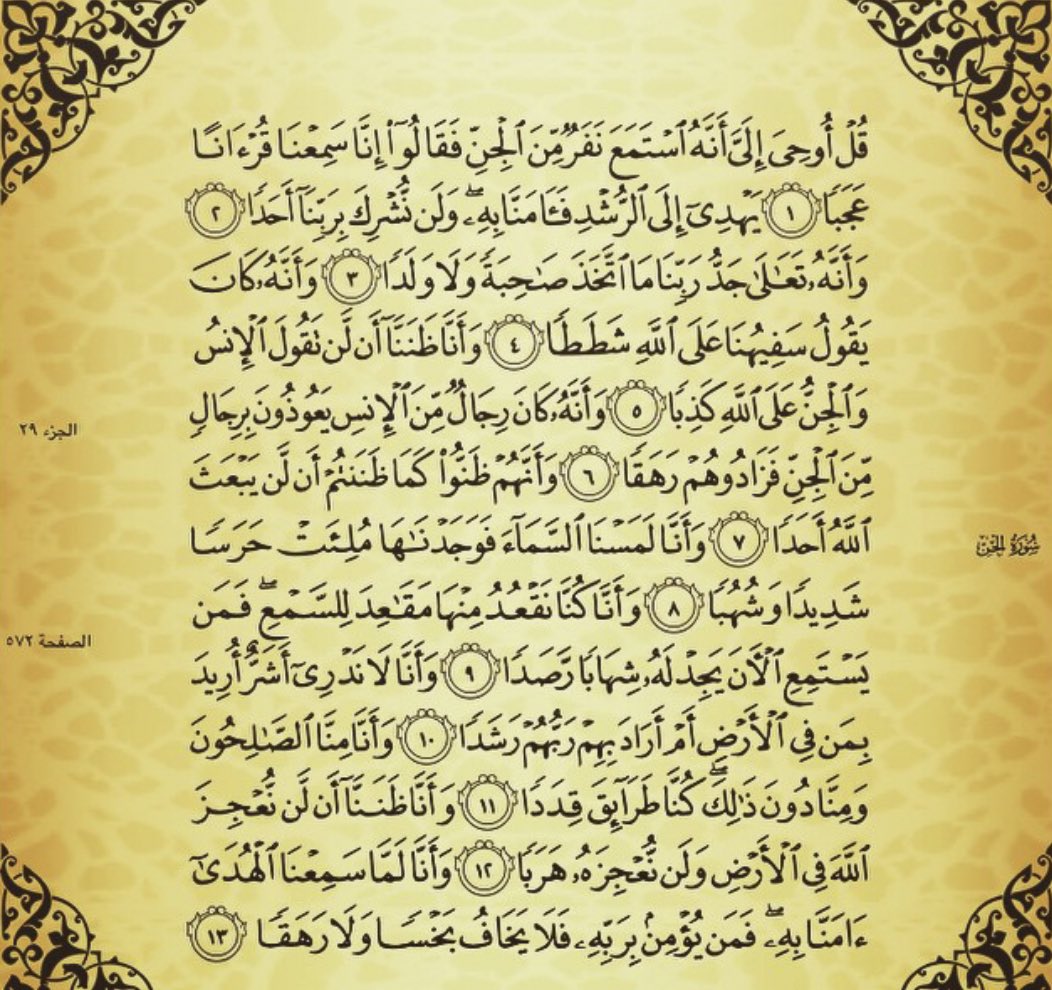 قُلْ أُوحِىَ إِلَىَّ أَنَّهُ ٱسْتَمَعَ نَفَرٌ مِّنَ ٱلْجِنِّ فَقَالُوٓا۟ إِنَّا سَمِعْنَا قُرْءَانًا
عَجَبًا ١ يَهْدِىٓ إِلَى ٱلرُّشْدِ فَـَٔامَنَّا بِهِۦ ۖ وَلَن نُّشْرِكَ بِرَبِّنَآ أَحَدًا ٢
وَأَنَّهُۥ تَعَـٰلَىٰ جَدُّ رَبِّنَا مَا ٱتَّخَذَ صَـٰحِبَةً وَلَا وَلَدًا ٣ وَأَنَّهُۥ كَانَ
يَقُولُ سَفِيهُنَا عَلَى ٱللَّهِ شَطَطًا ٤ وَأَنَّا ظَنَنَّآ أَن لَّن تَقُولَ ٱلْإِنسُ
وَٱلْجِنُّ عَلَى ٱللَّهِ كَذِبًا ٥ وَأَنَّهُۥ كَانَ رِجَالٌ مِّنَ ٱلْإِنسِ يَعُوذُونَ بِرِجَالٍ
مِّنَ ٱلْجِنِّ فَزَادُوهُمْ رَهَقًا ٦ وَأَنَّهُمْ ظَنُّوا۟ كَمَا ظَنَنتُمْ أَن لَّن يَبْعَثَ
ٱللَّهُ أَحَدًا ٧ وَأَنَّا لَمَسْنَا ٱلسَّمَآءَ فَوَجَدْنَـٰهَا مُلِئَتْ حَرَسًا
شَدِيدًا وَشُهُبًا ٨ وَأَنَّا كُنَّا نَقْعُدُ مِنْهَا مَقَـٰعِدَ لِلسَّمْعِ ۖ فَمَن
يَسْتَمِعِ ٱلْـَٔانَ يَجِدْ لَهُۥ شِهَابًا رَّصَدًا ٩ وَأَنَّا لَا نَدْرِىٓ أَشَرٌّ أُرِيدَ
بِمَن فِى ٱلْأَرْضِ أَمْ أَرَادَ بِهِمْ رَبُّهُمْ رَشَدًا ١٠ وَأَنَّا مِنَّا ٱلصَّـٰلِحُونَ
وَمِنَّا دُونَ ذَٰلِكَ ۖ كُنَّا طَرَآئِقَ قِدَدًا ١١ وَأَنَّا ظَنَنَّآ أَن لَّن نُّعْجِزَ
ٱللَّهَ فِى ٱلْأَرْضِ وَلَن نُّعْجِزَهُۥ هَرَبًا ١٢ وَأَنَّا لَمَّا سَمِعْنَا ٱلْهُدَىٰٓ
ءَامَنَّا بِهِۦ ۖ فَمَن يُؤْمِنۢ بِرَبِّهِۦ فَلَا يَخَافُ بَخْسًا وَلَا رَهَقًا ١٣
الجزء ٢٩
سُورَةُ الجِنّ
الصفحة ٥٧٢